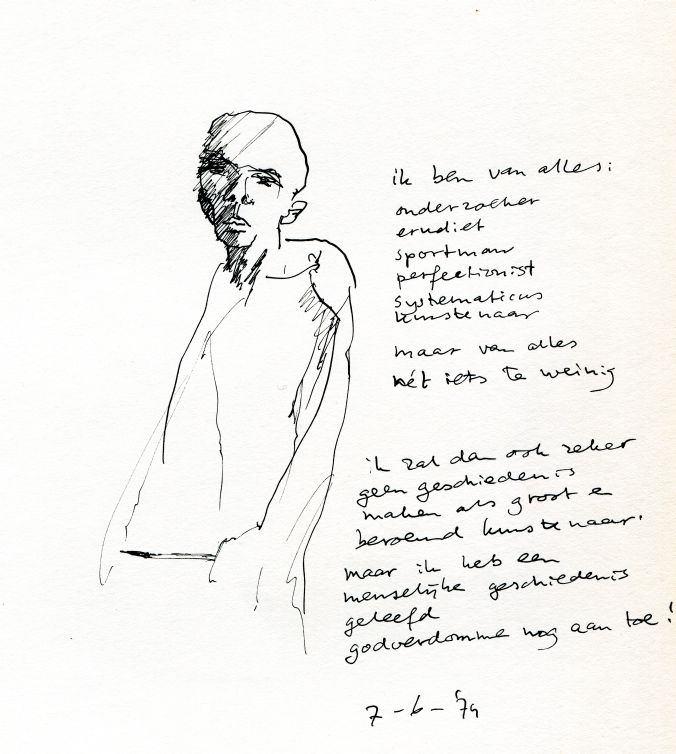 ik ben van alles:
onderzoeker
erudiet
sportman
perfectionist
systematicus
kunstenaar
maar van alles
nét iets te weinig
ik zal dan ook zeker
geen geschiedenis
maken als groot en
beroemd kunstenaar.
maar ik heb een
menselijke geschiedenis
geleefd
godverdomme nog aan toe!
7-6-'74